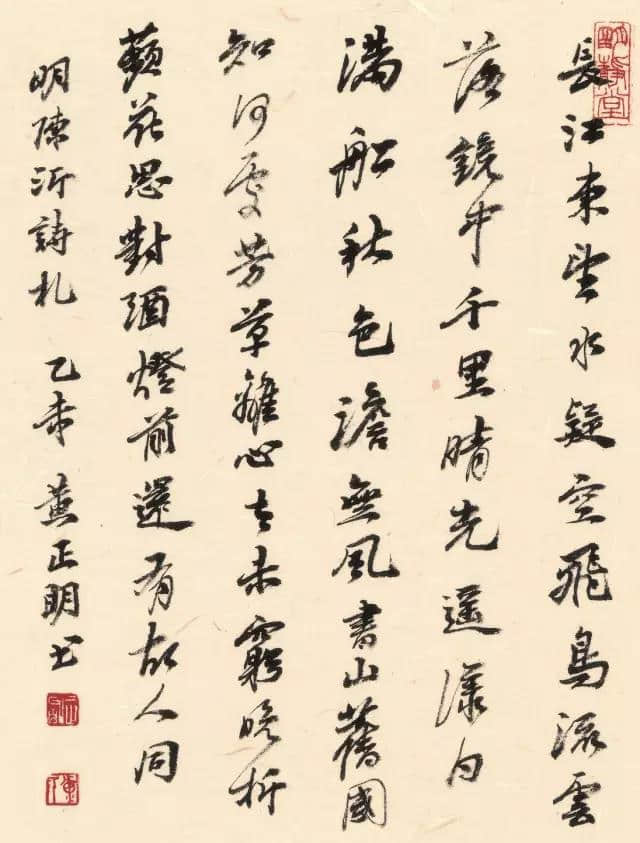 長江東望水疑空飛鳥流雲
落鏡中千里晴光遥漾日
滿船秋色澹無風青山舊國
知何處芳草離心去未窮晚折
蘋花思對酒燈前還有故人同
明陳沂詩札 乙未 黄正明書